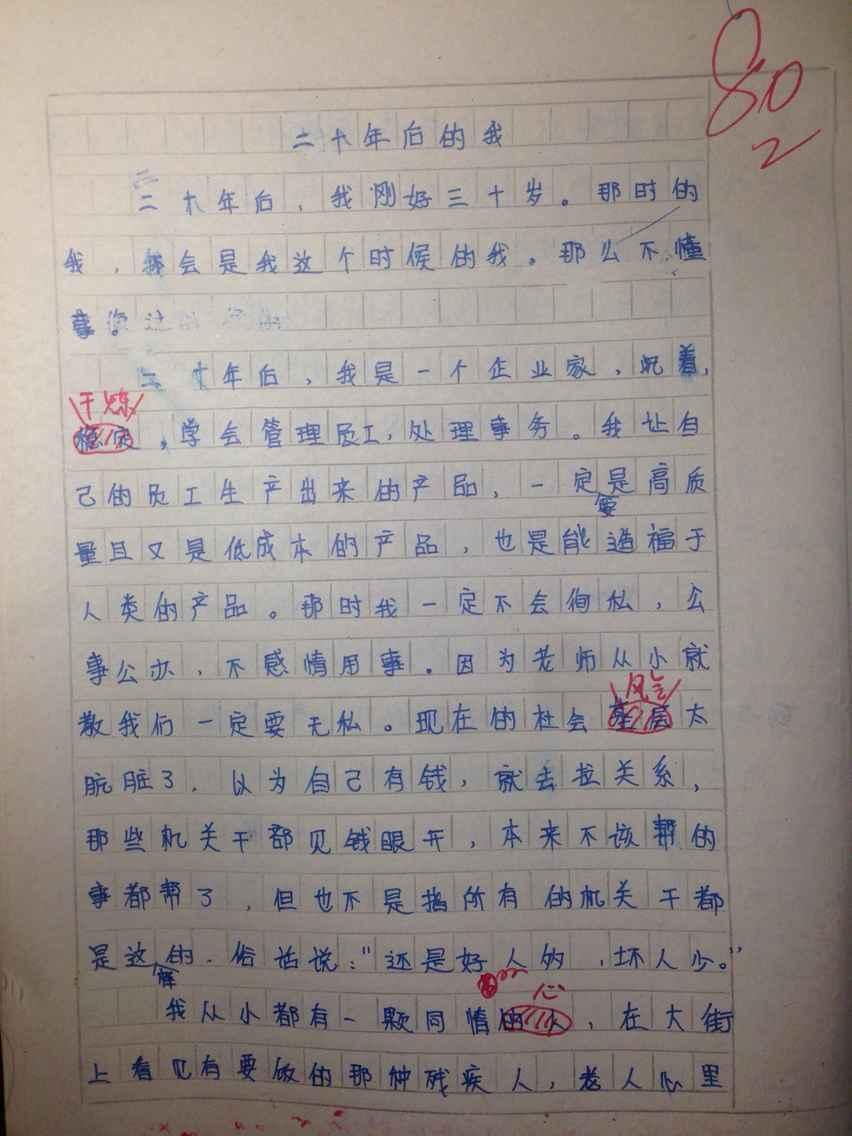 80
2
二十年后的我
二十年后，我刚好三十岁。那时的
我，会是我这个时候的我。那么不懂
事。
二十年后，我是一个企业家，沉着，
干炼
稳定，学会管理员工，处理事务。我让自
己的员工生产出来的产品，一定是高质
要
量且又是低成本的产品，也是能造福于
人类的产品。那时我一定不会徇私，公
事公办，不感情用事。因为老师从小就
风气
教我们一定要无私。现在的社会太
肮脏了，以为自己有钱，就去拉关系，
那些机关干部见钱眼开，本来不该帮的
事都帮了，但也不是指所有的机关干都
是这样的．俗话说："还是好人的，坏人少。"
心
我从小都有一颗同情，在大街
上看见有要饭的那种残疾人，老人心里